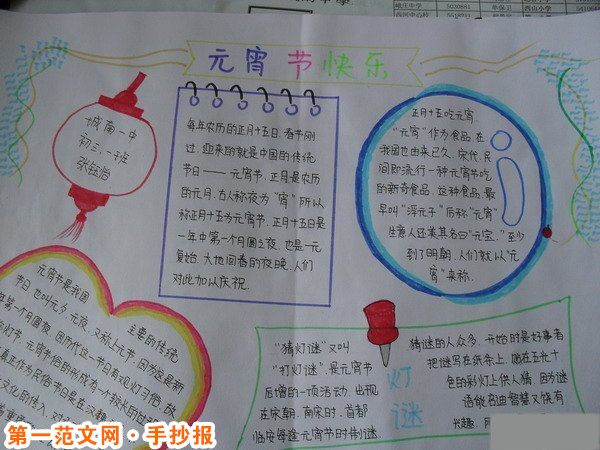 元宵节快乐
城南一中
初三.一班
每年农历的正月十五日.春节刚
过.迎来的就是中国的传统
节日——元宵节.正月是农历
的元月.古人称夜为“宵”所以
称正月十五为元宵节.正月十五日是
一年中第一个月圆之夜.也是一元
复始.大地回春的夜晚.人们
对此加以庆祝.
正月十五吃元宵.
“元宵”作为食品.在
我国也由来已久.宋代.民
间即流行一种元宵节吃
的新奇食品.这种食品.最
早叫“浮元子”后称“元宵”
生意人还美其名曰“元宝.”至少
到了明朝.人们就以“元
宵”来称.
元宵节是我国
主要的传统
节日.也叫元夕.元夜.又称上元节.因为这是新
年第一个月圆夜.因历代这一节日有观灯习俗.故
灯节.元宵节俗的形成有一个较长的
真正作为民俗节日是在汉魏
文化的传入
“猜灯谜”又叫
“打灯谜”.是元宵节
后增的一项活动.出现
在宋朝.南宋时.首都
临安每逢元宵节时制谜.
灯
谜
猜谜的人众多.开始时是好事者
把谜写在纸条上.贴在五光十
色的彩灯上供人猜.因为谜
语能启迪智慧又饶有
兴趣.
第一范文网·手抄报